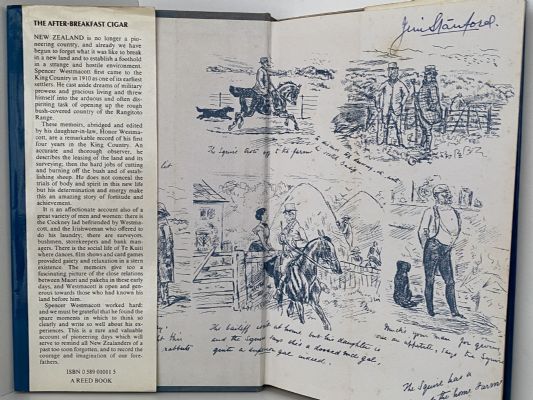 THE AFTER-BREAKFAST CIGAR
NEW ZEALAND is no longer a pio-
neering country, and already we have
begun to forget what it was like to break
in a new land and to establish a foothold
in a strange and hostile environment.
Spencer Westmacott first came to the
King Country in 1910 as one of its earliest
settlers. He cast aside dreams of military
prowess and gracious living and threw
himself into the arduous and often dis-
pirning task of opening up the rough
bush-covered country of the Rangitoto
Range.
These memoirs, abridged and edited
by his daughter-in-law, Honor Westma-
cott, are a remarkable record of his first
four years in the King Country. An
accurate and thorough observer, he
describes the leasing of the land and its
surveying, then the hard jobs of cutting
and burning off the bush and of estab-
lishing sheep. He does not conceal the
trials of body and spirit in this new life
but his determination and energy make
this an amazing story of fortitude and
achievement.
It is an affectionate account also of a
great variety of men and women: there is
the Cockney lad befriended by Westma-
cott, and the Irishwoman who offered to
do his laundry; there are surveyors,
bushmen, storekeepers and bank man-
agers. There is the social life of Te Kuiti
where dances, film shows and card games
provided gaiety and relaxation in a stern
existence. The memoirs give too a
fascinating picture of the close relations
between Maori and pakeha in these early
days, and Westmacott is open and gen-
erous towards those who had known his
land before him.
Spencer Westmacott worked hard;
and we must be grateful that he found the
spare moments in which to think so
clearly and write so well about his ex-
periences. This is a rare and valuable
account of pioneering days which will
serve to remind all New Zealanders of a
past too soon forgotten, and to record the
courage and imagination of our fore-
fathers.
ISBN 0 589 01011 5
A REED BOOK
Jim Stanford.
The Squire
the farm
lot
The bailiff
at home but his daughter is
and the Squire says she's a dashed nice gal
quite a superior gal indeed.
this
rabbits
Much's your man for giving
one an appetite, says the Squire
The Squire has a
the home Farm